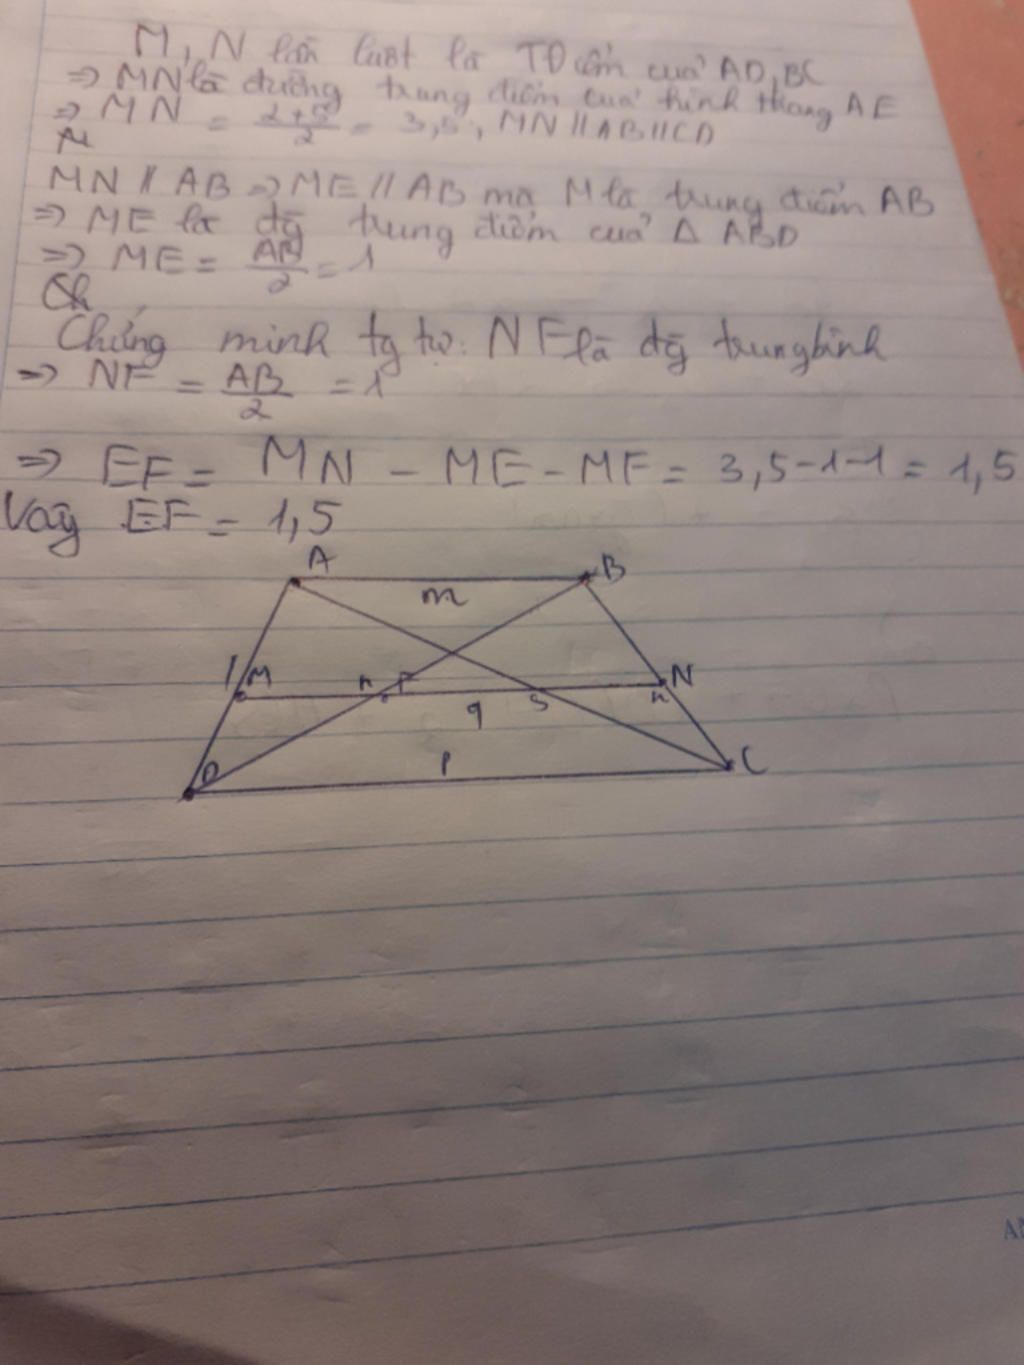 M, N lần lượt là TĐiểm cuả AD, BC
=> MN là đường trung điểm cuả hình thang AE
=> MN = 2+5/2 = 3,5, MN // AB // CD
M
MN // AB => ME // AB mà M là trung điểm AB
=> ME là đg trung điểm cuả Δ ABD
=> ME = AB/2 = 1
Ch
Chứng minh tg tự: NF là đg trung bình
=> NF = AB/2 = 1
=> EF = MN - ME - MF = 3,5-1-1 = 1,5
Vậy EF = 1,5
A B
m
M n F S n N
q
D P C